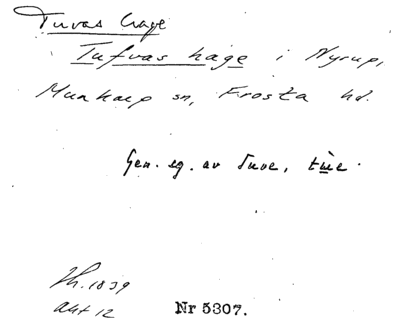 Tuvas hage
Tufvas hage i Nyrup,
Munkarp sn, Frosta hd.
Gen. sg. av Tuve, tùe.
Sk. 1839
akt 12
Nr 5307.